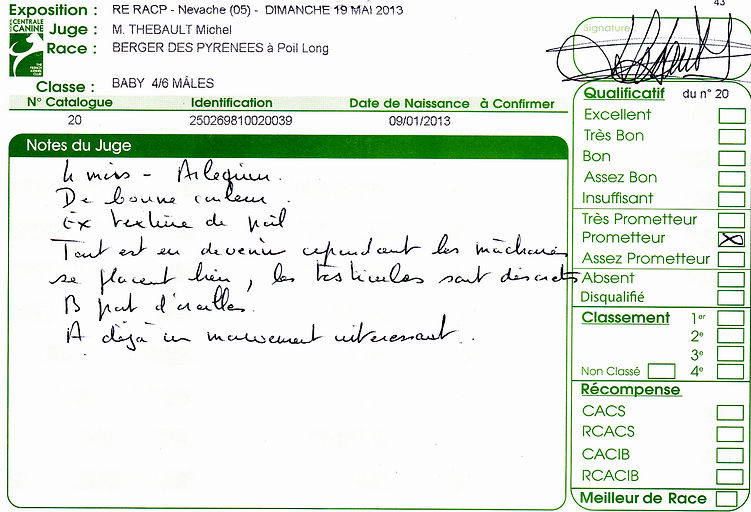 43
Exposition : RE RACP - Nevache (05) - DIMANCHE 19 MAI 2013
CENTRALE
CANINE
Juge : M. THEBAULT Michel
Race : BERGER DES PYRENEES à Poil Long
Classe : BABY 4/6 MÂLES
N° Catalogue Identification Date de Naissance à Confirmer
20 250269810020039 09/01/2013
Notes du Juge
4 mois - Arlequin.
De bonne couleur.
Ex texture de poil
Tout est en devenir cependant les mâchoires
se placent bien, les testicules sont discrets
B port d'oreilles.
A déjà un mouvement intéressant.
Signature
Qualificatif du n° 20
Excellent
Très Bon
Bon
Assez Bon
Insuffisant
Très Prometteur
Prometteur
Assez Prometteur
Absent
Disqualifié
Classement 1er
2e
3e
Non Classé 4e
Récompense
CACS
RCACS
CACIB
RCACIB
Meilleur de Race